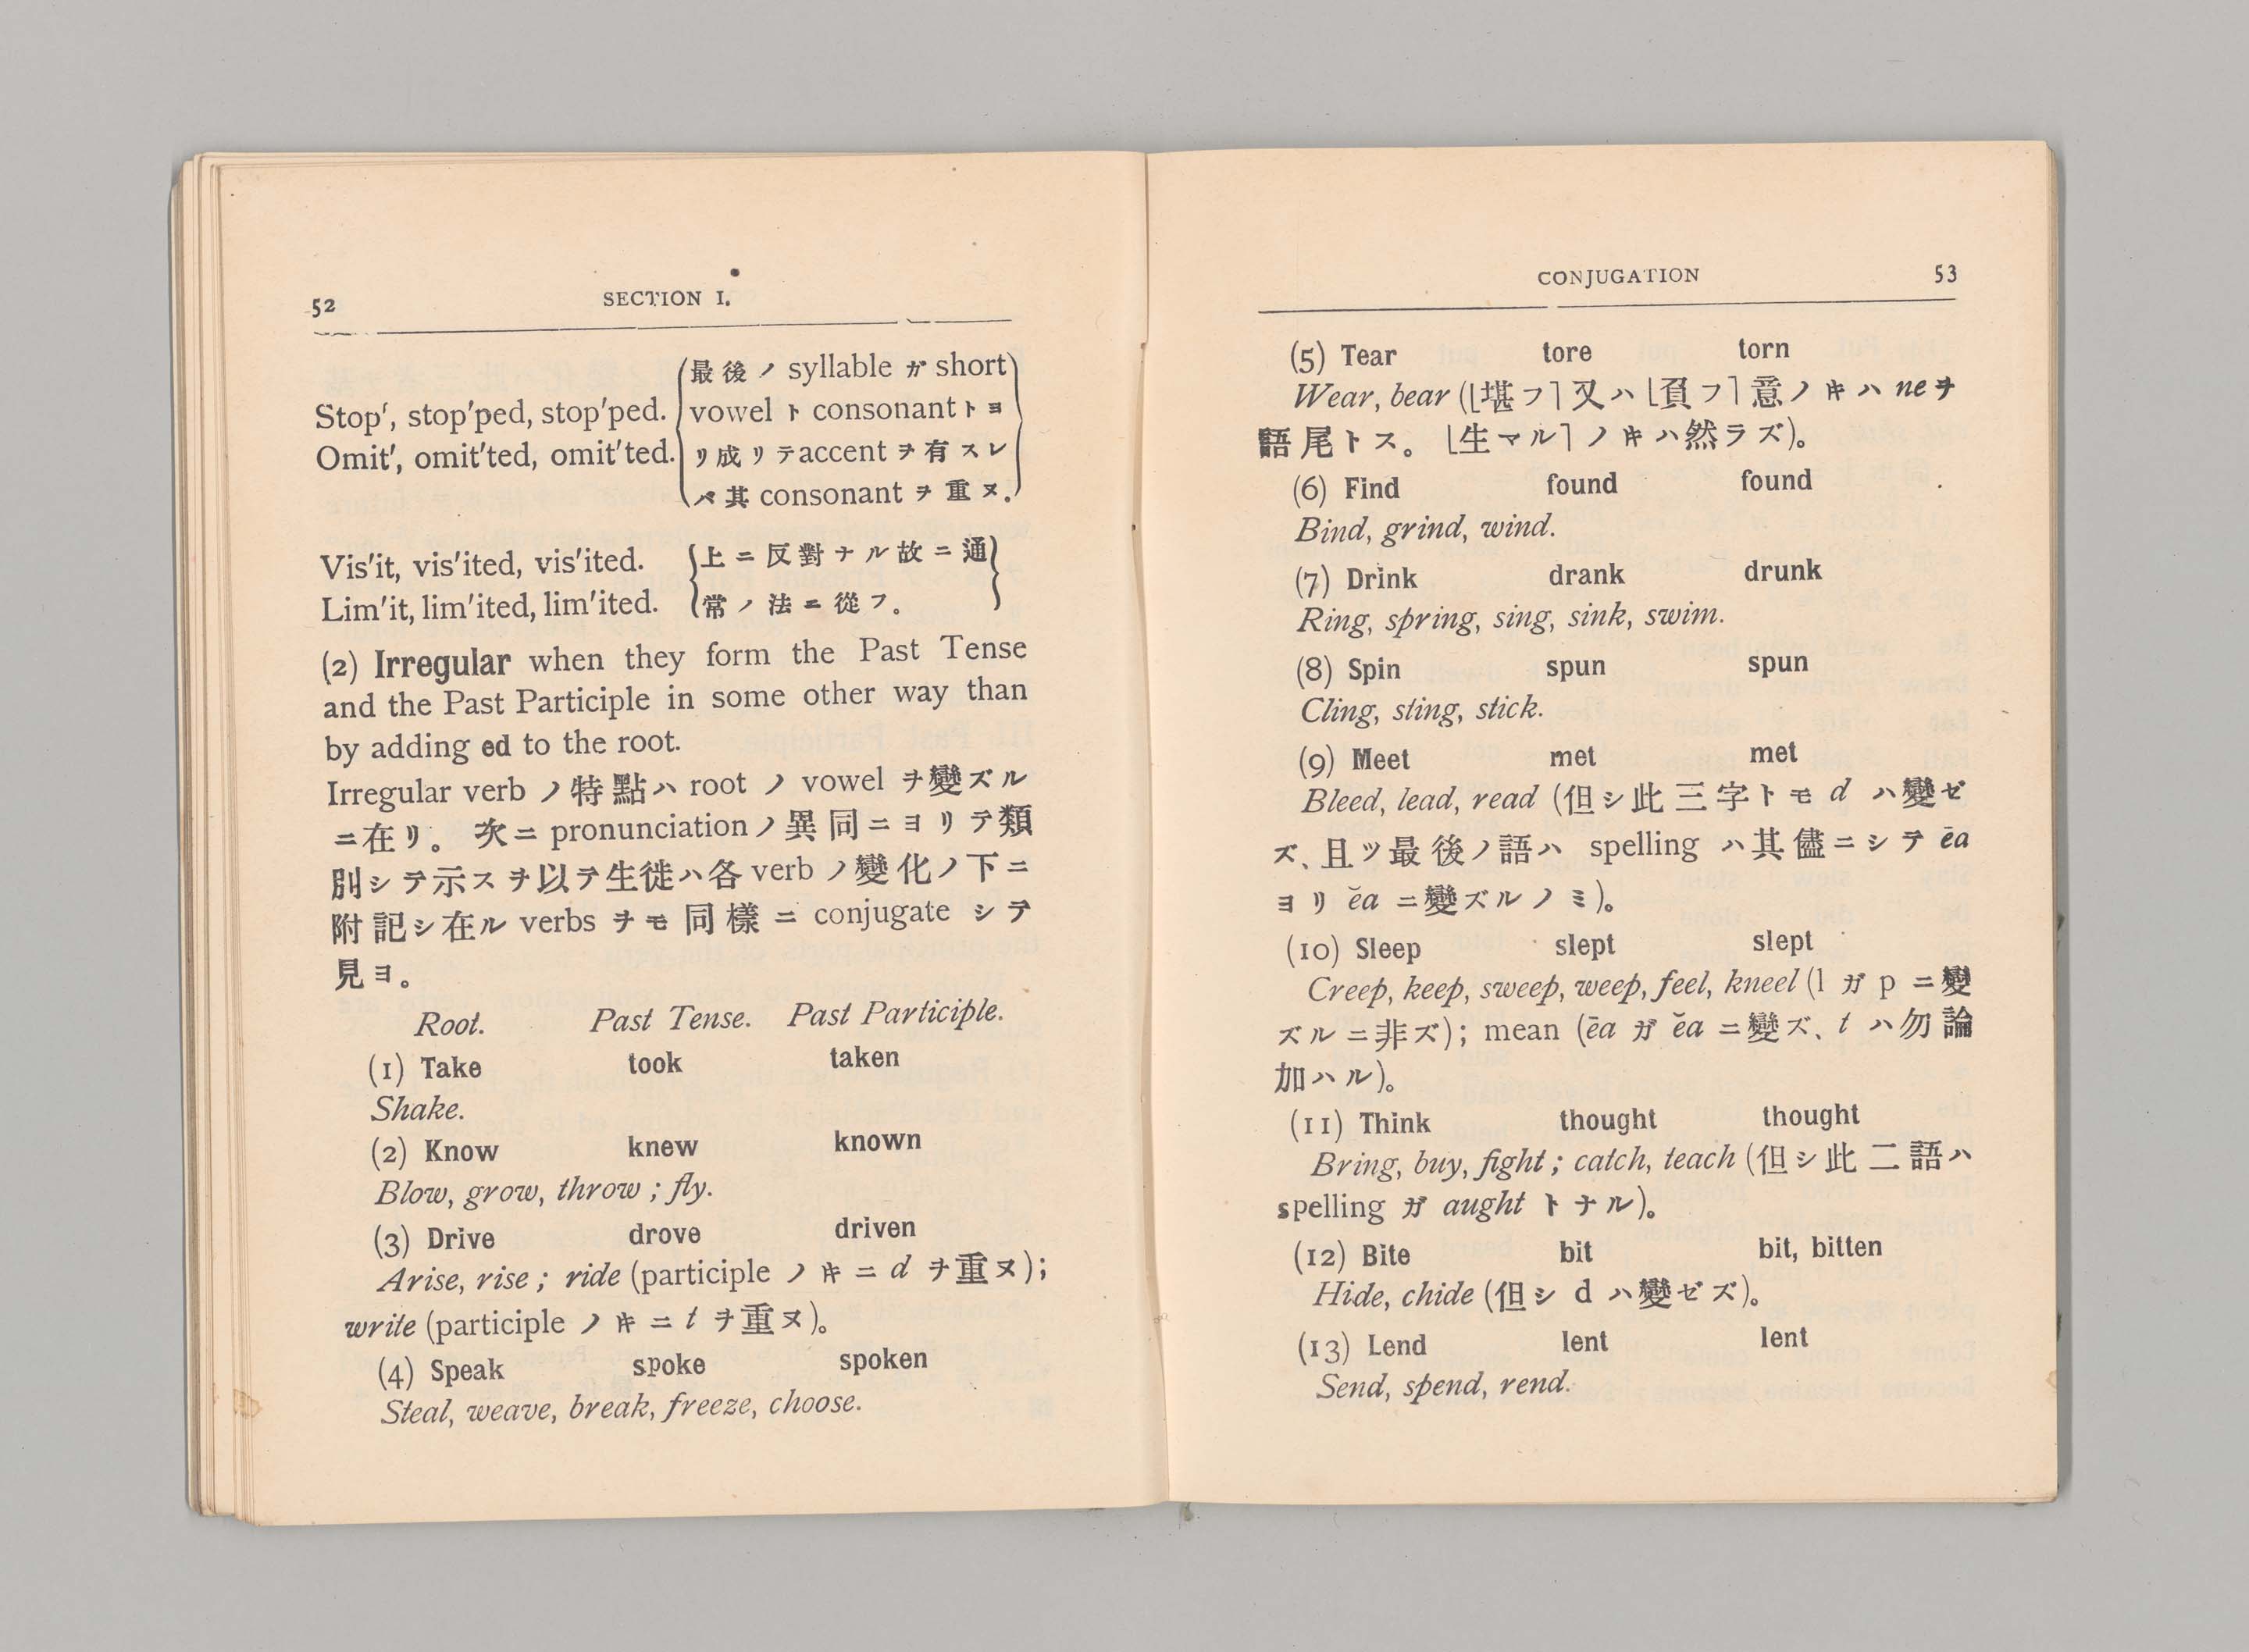 52 SECTION I.
Stop′, stop′ped, stop′ped.
Omit′, omit′ted, omit′ted.
最後ノ syllable ガ short
vowel ト consonant ト ヨ
リ成リテ accent ヲ有スレ
バ其 consonant ヲ重ヌ.
Vis′it, vis′ited, vis′ited.
Lim′it, lim′ited, lim′ited.
上ニ反對ナル故ニ通
常ノ法ニ從フ。
(2) Irregular when they form the Past Tense
and the Past Participle in some other way than
by adding ed to the root.
Irregular verb ノ特點ハ root ノ vowel ヲ變ズル
ニ在リ。次ニ pronunciation ノ異同ニヨリテ類
別シテ示スヲ以テ生徙ハ各 verb ノ變化ノ下ニ
附記シ在ル verbs ヲモ同樣ニ conjugate シテ
見ヨ。
Root. Past Tense. Past Participle.
(1) Take took taken
Shake.
(2) Know knew known
Blow, grow, throw ; fly.
(3) Drive drove driven
Arise, rise ; ride (participle ノキニ d ヲ重ヌ);
write (participle ノキニ t ヲ重ヌ)。
(4) Speak spoke spoken
Steal, weave, break, freeze, choose.
CONJUGATION 53
(5) Tear tore torn
Wear, bear (「堪フ」又ハ「負フ」意ノキハ neヲ
語尾トス。「生マル」ノキハ然ラズ)。
(6) Find found found
Bind, grind, wind.
(7) Drink drank drunk
Ring, spring, sing, sink, swim.
(8) Spin spun spun
Cling, sting, stick.
(9) Meet met met
Bleed, lead, read (但シ此三字トモ d ハ變ゼ
ズ、且ツ最後ノ語ハ spelling ハ其儘ニシテ ēa
ヨリ ĕa ニ變ズルノミ)。
(10) Sleep slept slept
Creep, keep, sweep, weep, feel, kneel (l ガ p ニ變
ズルニ非ズ); mean (ēa ガ ĕa ニ變ズ、t ハ勿論
加ハル)。
(11) Think thought thought
Bring, buy, fight ; catch, teach (但シ此二語ハ
spelling ガ aught トナル)。
(12) Bite bit bit, bitten
Hide, chide (但シ d ハ變ゼズ)。
(13) Lend lent lent
Send, spend, rend.